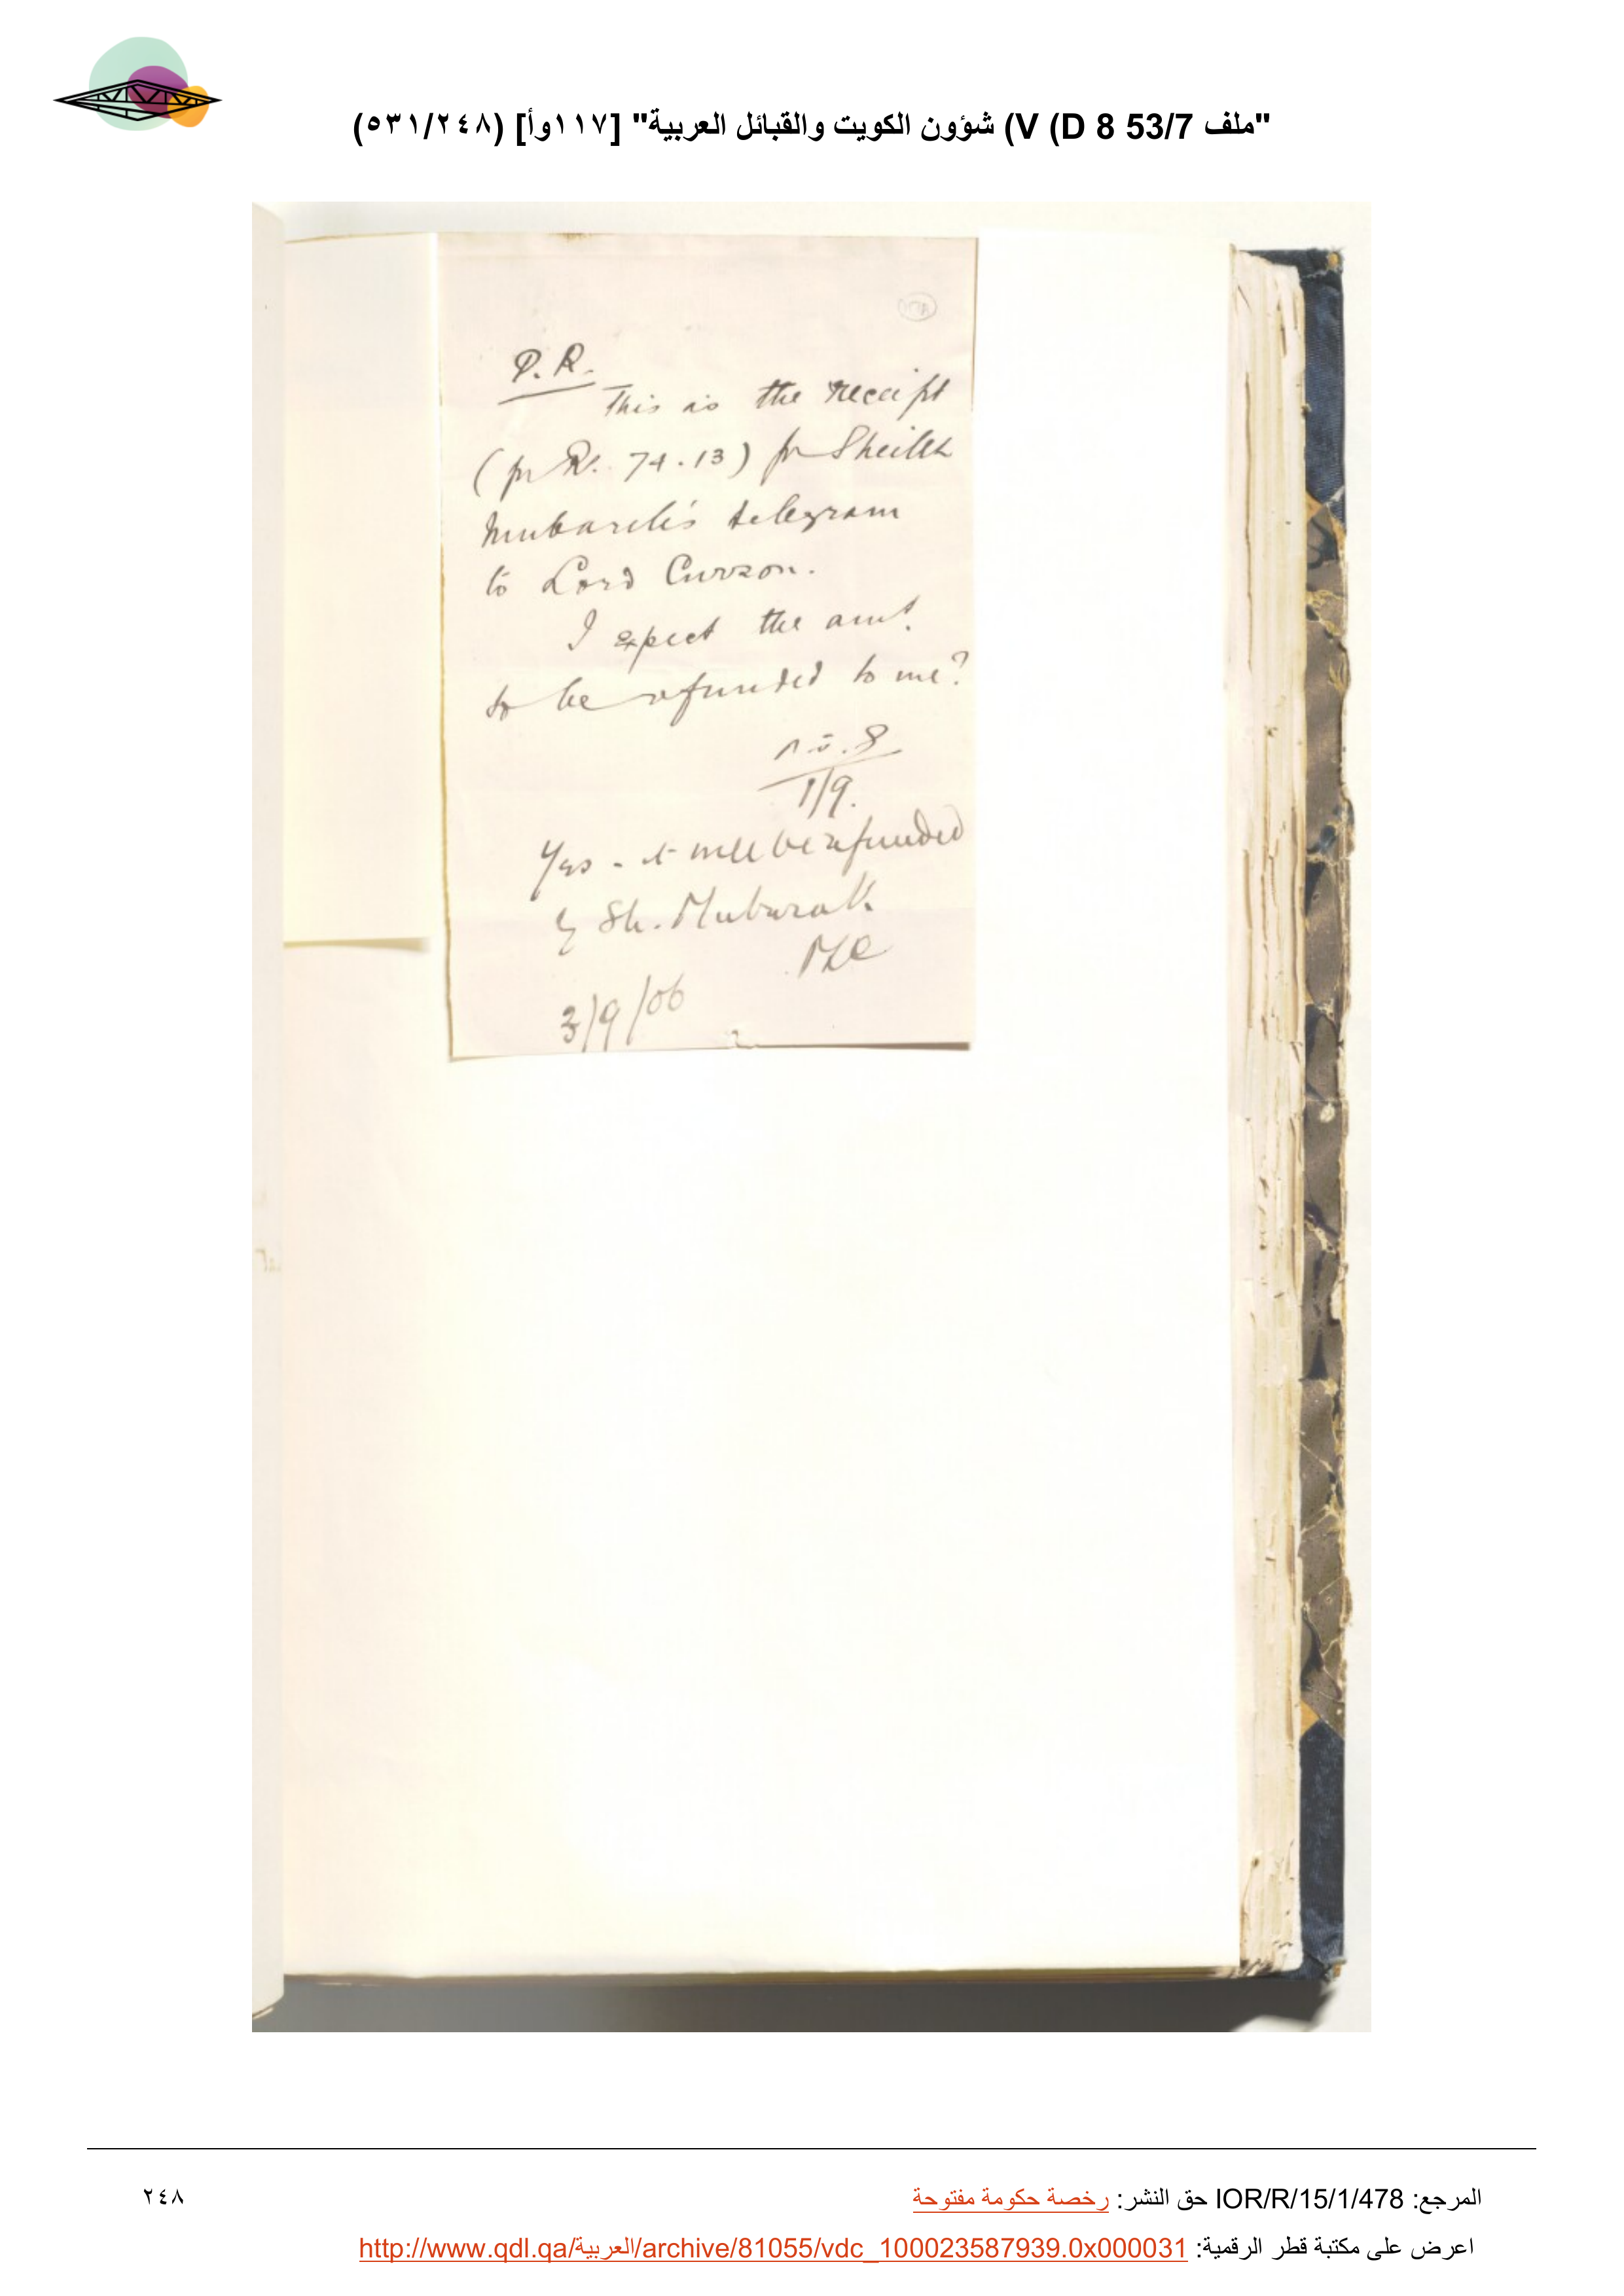 "ملف 53/7 V (D 8) شؤون الكويت والقبائل العربية" [١١٧وأ] (٥٣١/٢٤٨)
P. R.
This is the receipt
(for Rs. 74.13) for Sheikh
Mubarak's telegram
to Lord Curzon.
I expect the amt.
to be refunded to me?
1/9.
Yes - it will be refunded
by Sh. Mubarak
3/9/06
المرجع: IOR/R/15/1/478 حق النشر: رخصة حكومة مفتوحة
٢٤٨
اعرض على مكتبة قطر الرقمية: http://www.qdl.qa/العربية/archive/81055/vdc_100023587939.0x000031